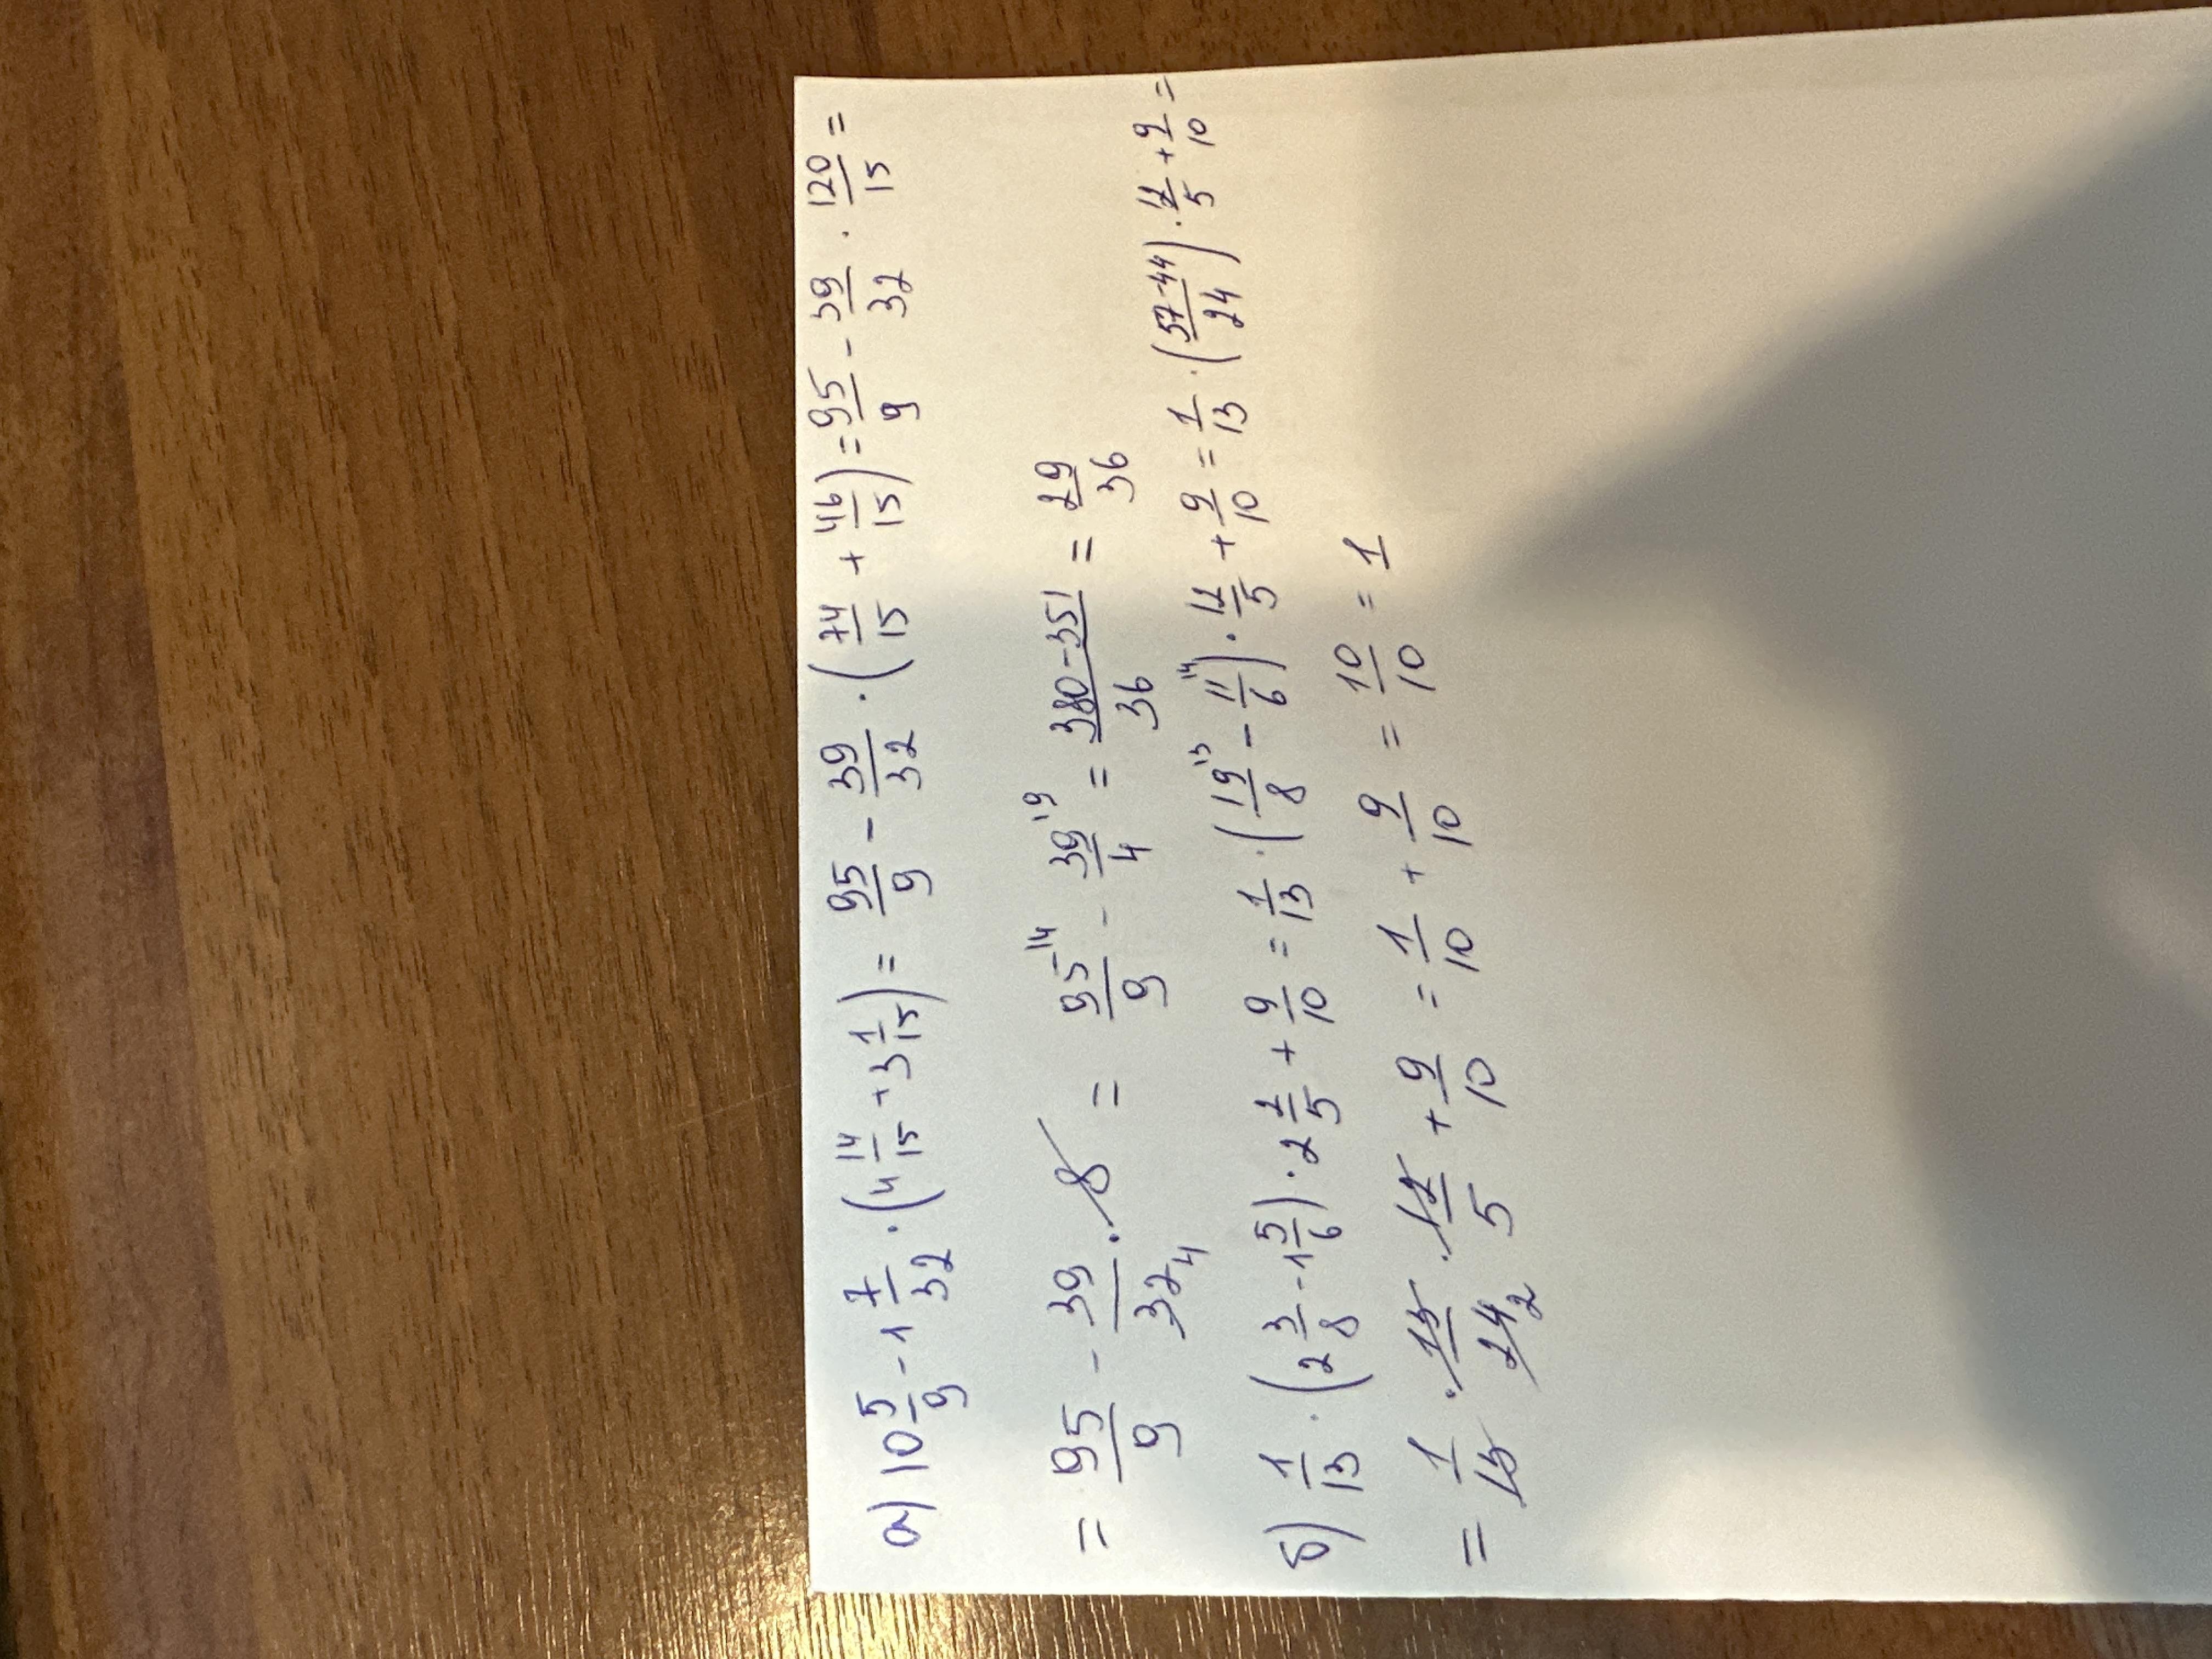 а) 10 5/9 - 1 7/32 · (4 14/15 + 3 1/15) = 95/9 - 39/32 · (74/15 + 46/15) = 95/9 - 39/32 · 120/15 =
= 95/9 - 39/32 4 · 8 = 95/9 \4 - 39/4 \9 = 380-351/36 = 29/36
б) 1/13 · (2 3/8 - 1 5/6) · 2 2/5 + 9/10 = 1/13 · (19/8 \3 - 11/6 \4) · 12/5 + 9/10 = 1/13 · (57-44/24) · 12/5 + 9/10 =
= 1/13 · 13/24 2 · 12/5 + 9/10 = 1/10 + 9/10 = 10/10 = 1